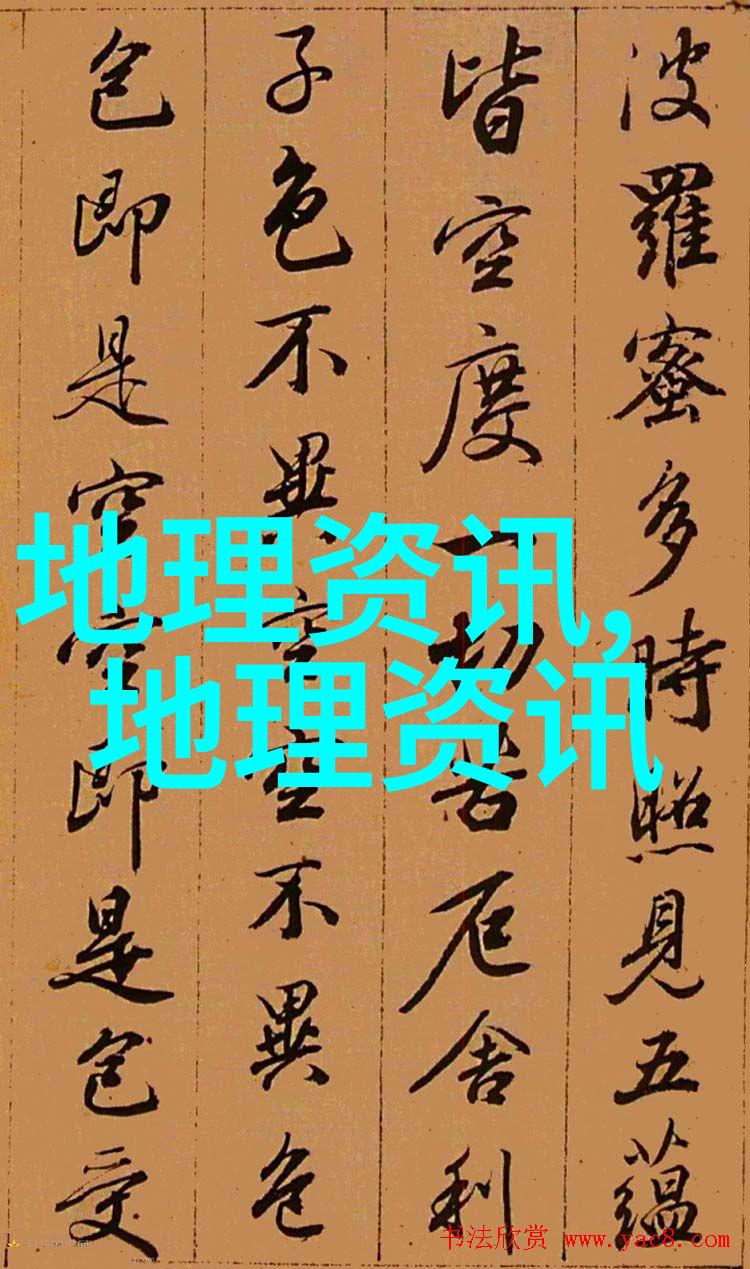 波羅蜜多時照見五蘊
皆空度一切苦厄舍利
子色不異空空不異色
色即是空空即是色受
地理资讯,
地理资讯
书法欣赏 www.yac8.com